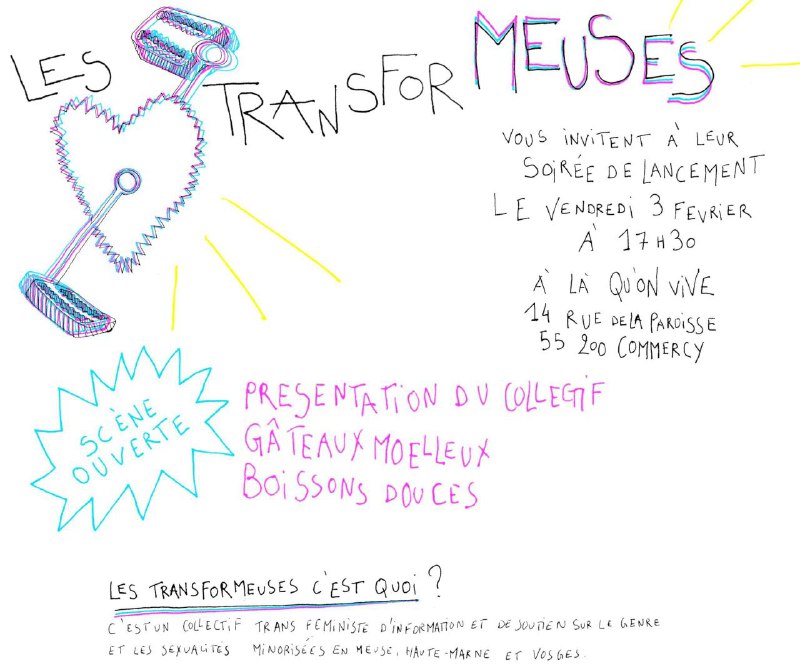 LES TRANSFORMEUSES
VOUS INVITENT À LEUR
SOIRÉE DE LANCEMENT
LE VENDREDI 3 FEVRIER
À 17H30
À LÀ QU'ON VIVE
14 RUE DE LA PAROISSE
55 200 COMMERCY
SCÈNE
OUVERTE
PRESENTATION DU COLLECTIF
GÂTEAUX MOELLEUX
BOISSONS DOUCES
LES TRANSFORMEUSES C'EST QUOI ?
C'EST UN COLLECTIF TRANS FÉMINISTE D'INFORMATION ET DE SOUTIEN SUR LE GENRE
ET LES SEXUALITÉS MINORISÉES EN MEUSE, HAUTE-MARNE ET VOSGES.